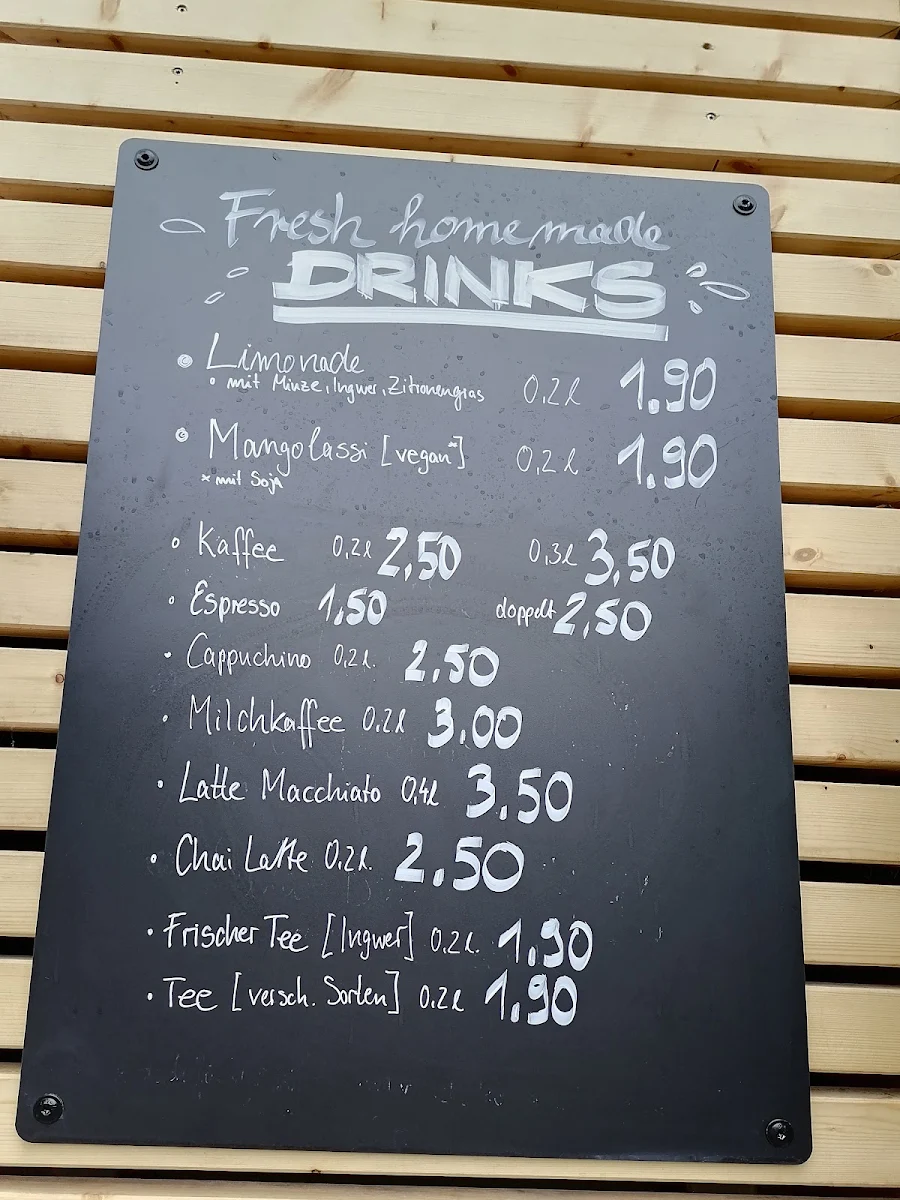 Fresh homemade
DRINKS
Limonade 0,2l 1.90
mit Minze, Ingwer, Zitronengras
Mangolassi [vegan*] 0,2l 1.90
* mit Soja
Kaffee 0,2l 2,50 0,3l 3,50
Espresso 1,50 doppelt 2,50
Cappuchino 0,2l. 2.50
Milchkaffee 0,2l 3.00
Latte Macchiato 0,4l 3.50
Chai Latte 0,2l. 2.50
Frischer Tee [Ingwer] 0,2l. 1.90
Tee [versch. Sorten] 0,2l 1.90